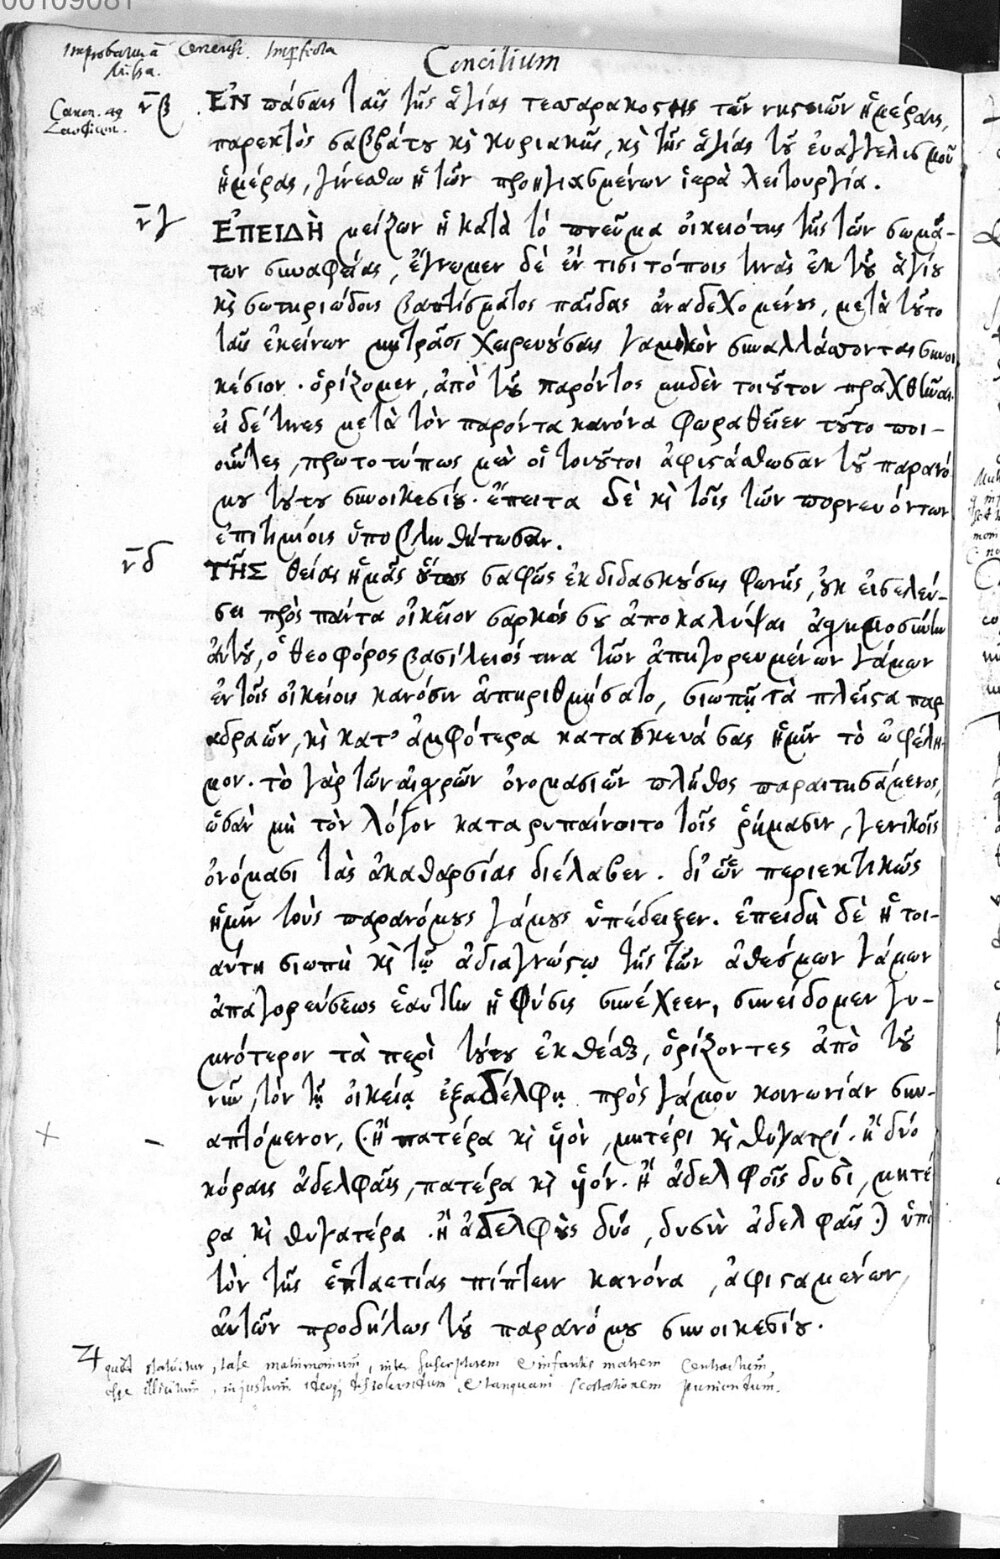 00109081
Concilium
Imperfecta
Missa.
Canon. 49
Laodicen.
ν̅β
ἘΝ πάσαις ταῖς τῆς ἁγίας τεσσαρακοστῆς τῶν νηστειῶν ἡμέραις,
παρεκτὸς σαββάτου κỳ κυριακῆς, κỳ τῆς ἁγίας τοῦ ἐυαγγελισμοῦ
ἡμέρας, γινέσθω ἡ τῶν προηγιασμένων ἱερὰ λειτουργία.
ν̅γ
ἘΠΕΙΔῊ μείζων ἡ κατὰ τὸ πνεῦμα οἰκειότης τῆς τῶν σωμά-
των συναφείας, ἔγνωμεν δὲ ἔν τισι τόποις τινὰς ἐκ τοῦ ἁγίου
κỳ σωτηριώδους βαπτίσματος παῖδας ἀναδεχομένους, μετὰ τοῦτο
ταῖς ἐκείνων μητράσι χηρευούσαις γαμικὸν συναλλάσσοντας συνοι
κέσιον· ὁρίζομεν, ἀπὸ τοῦ παρόντος μηδὲν τοιοῦτον πραχθῆναι.
εἰ δέ τινες μετὰ τὸν παρόντα κανόνα φωραθεῖεν τοῦτο ποι-
οῦντες, πρωτοτύπως μὲν οἱ τοιοῦτοι ἀφιστάσθωσαν τοῦ παρανό
μου τούτου συνοικεσίου· ἔπειτα δὲ κỳ τοῖς τῶν πορνευόντων
ἐπιτιμίοις ὑποβληθήτωσαν.
ν̅δ
ΤΗ͂Σ θείας ἡμᾶς οὕτως σαφῶς ἐκδιδασκούσης φωνῆς, οὐκ εἰσελεύ-
σει πρὸς πάντα οἰκεῖον σαρκός σου ἀποκαλύψαι ἀσχημοσύνην
ἀυτοῦ, ὁ θεοφόρος βασίλειός τινα τῶν ἀπηγορευμένων γάμων
ἐν τοῖς οἰκείοις κανόσιν ἀπηριθμήσατο, σιωπῇ τὰ πλεῖστα παρ
αδραμῶν, κỳ κατ' ἀμφότερα κατασκευάσας ἡμῖν τὸ ὠφέλι-
μον· τὸ γὰρ τῶν αἰσχρῶν ὀνομασιῶν πλῆθος παραιτησάμενος,
ὡσὰν μὴ τὸν λόγον καταρυπαίνοιτο τοῖς ῥήμασιν, γενικοῖς
ὀνόμασι τὰς ἀκαθαρσίας διέλαβεν. δι' ὧν περιεκτικῶς
ἡμῖν τοὺς παρανόμους γάμους ὑπέδειξεν. ἐπειδὴ δὲ ἡ τοι-
αύτη σιωπὴ κỳ τῷ ἀδιαγνώστῳ τῆς τῶν ἀθέσμων γάμων
ἀπαγορεύσεως ἑαυτὴν ἡ φύσις συνέχεεν, συνείδομεν γυ-
μνότερον τὰ περὶ τούτου ἐκθέσθαι, ὁρίζοντες ἀπὸ τοῦ
νῦν, τὸν τῇ οἰκείᾳ ἐξαδέλφῃ πρὸς γάμου κοινωνίαν συν-
απτόμενον, (· ἢ πατέρα κỳ υἱὸν, μητέρι κỳ θυγατρί· ἢ δύο
κόραις ἀδελφαῖς, πατέρα κỳ υἱόν· ἢ ἀδελφοῖς δυσὶ, μητέ
ρα κỳ θυγατέρα· ἢ ἀδελφοὺς δύο, δυσὶν ἀδελφαῖς·) ὑπὸ
τὸν τῆς ἑπταετίας πίπτειν κανόνα, ἀφισταμένων,
ἀυτῶν προδήλως τοῦ παρανόμου συνοικεσίου.
quod statuitur, tale matrimonium, inter susceptorem et infantis matrem contractum,
esse illicitum, injustum ideoq; dissolvendum, et tanquam scortationem puniendum.